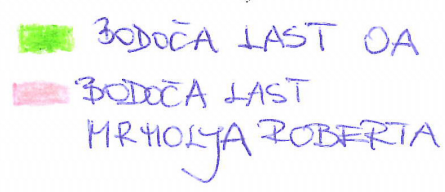 BODOČA LAST OA
BODOČA LAST
MRMOLJA ROBERTA